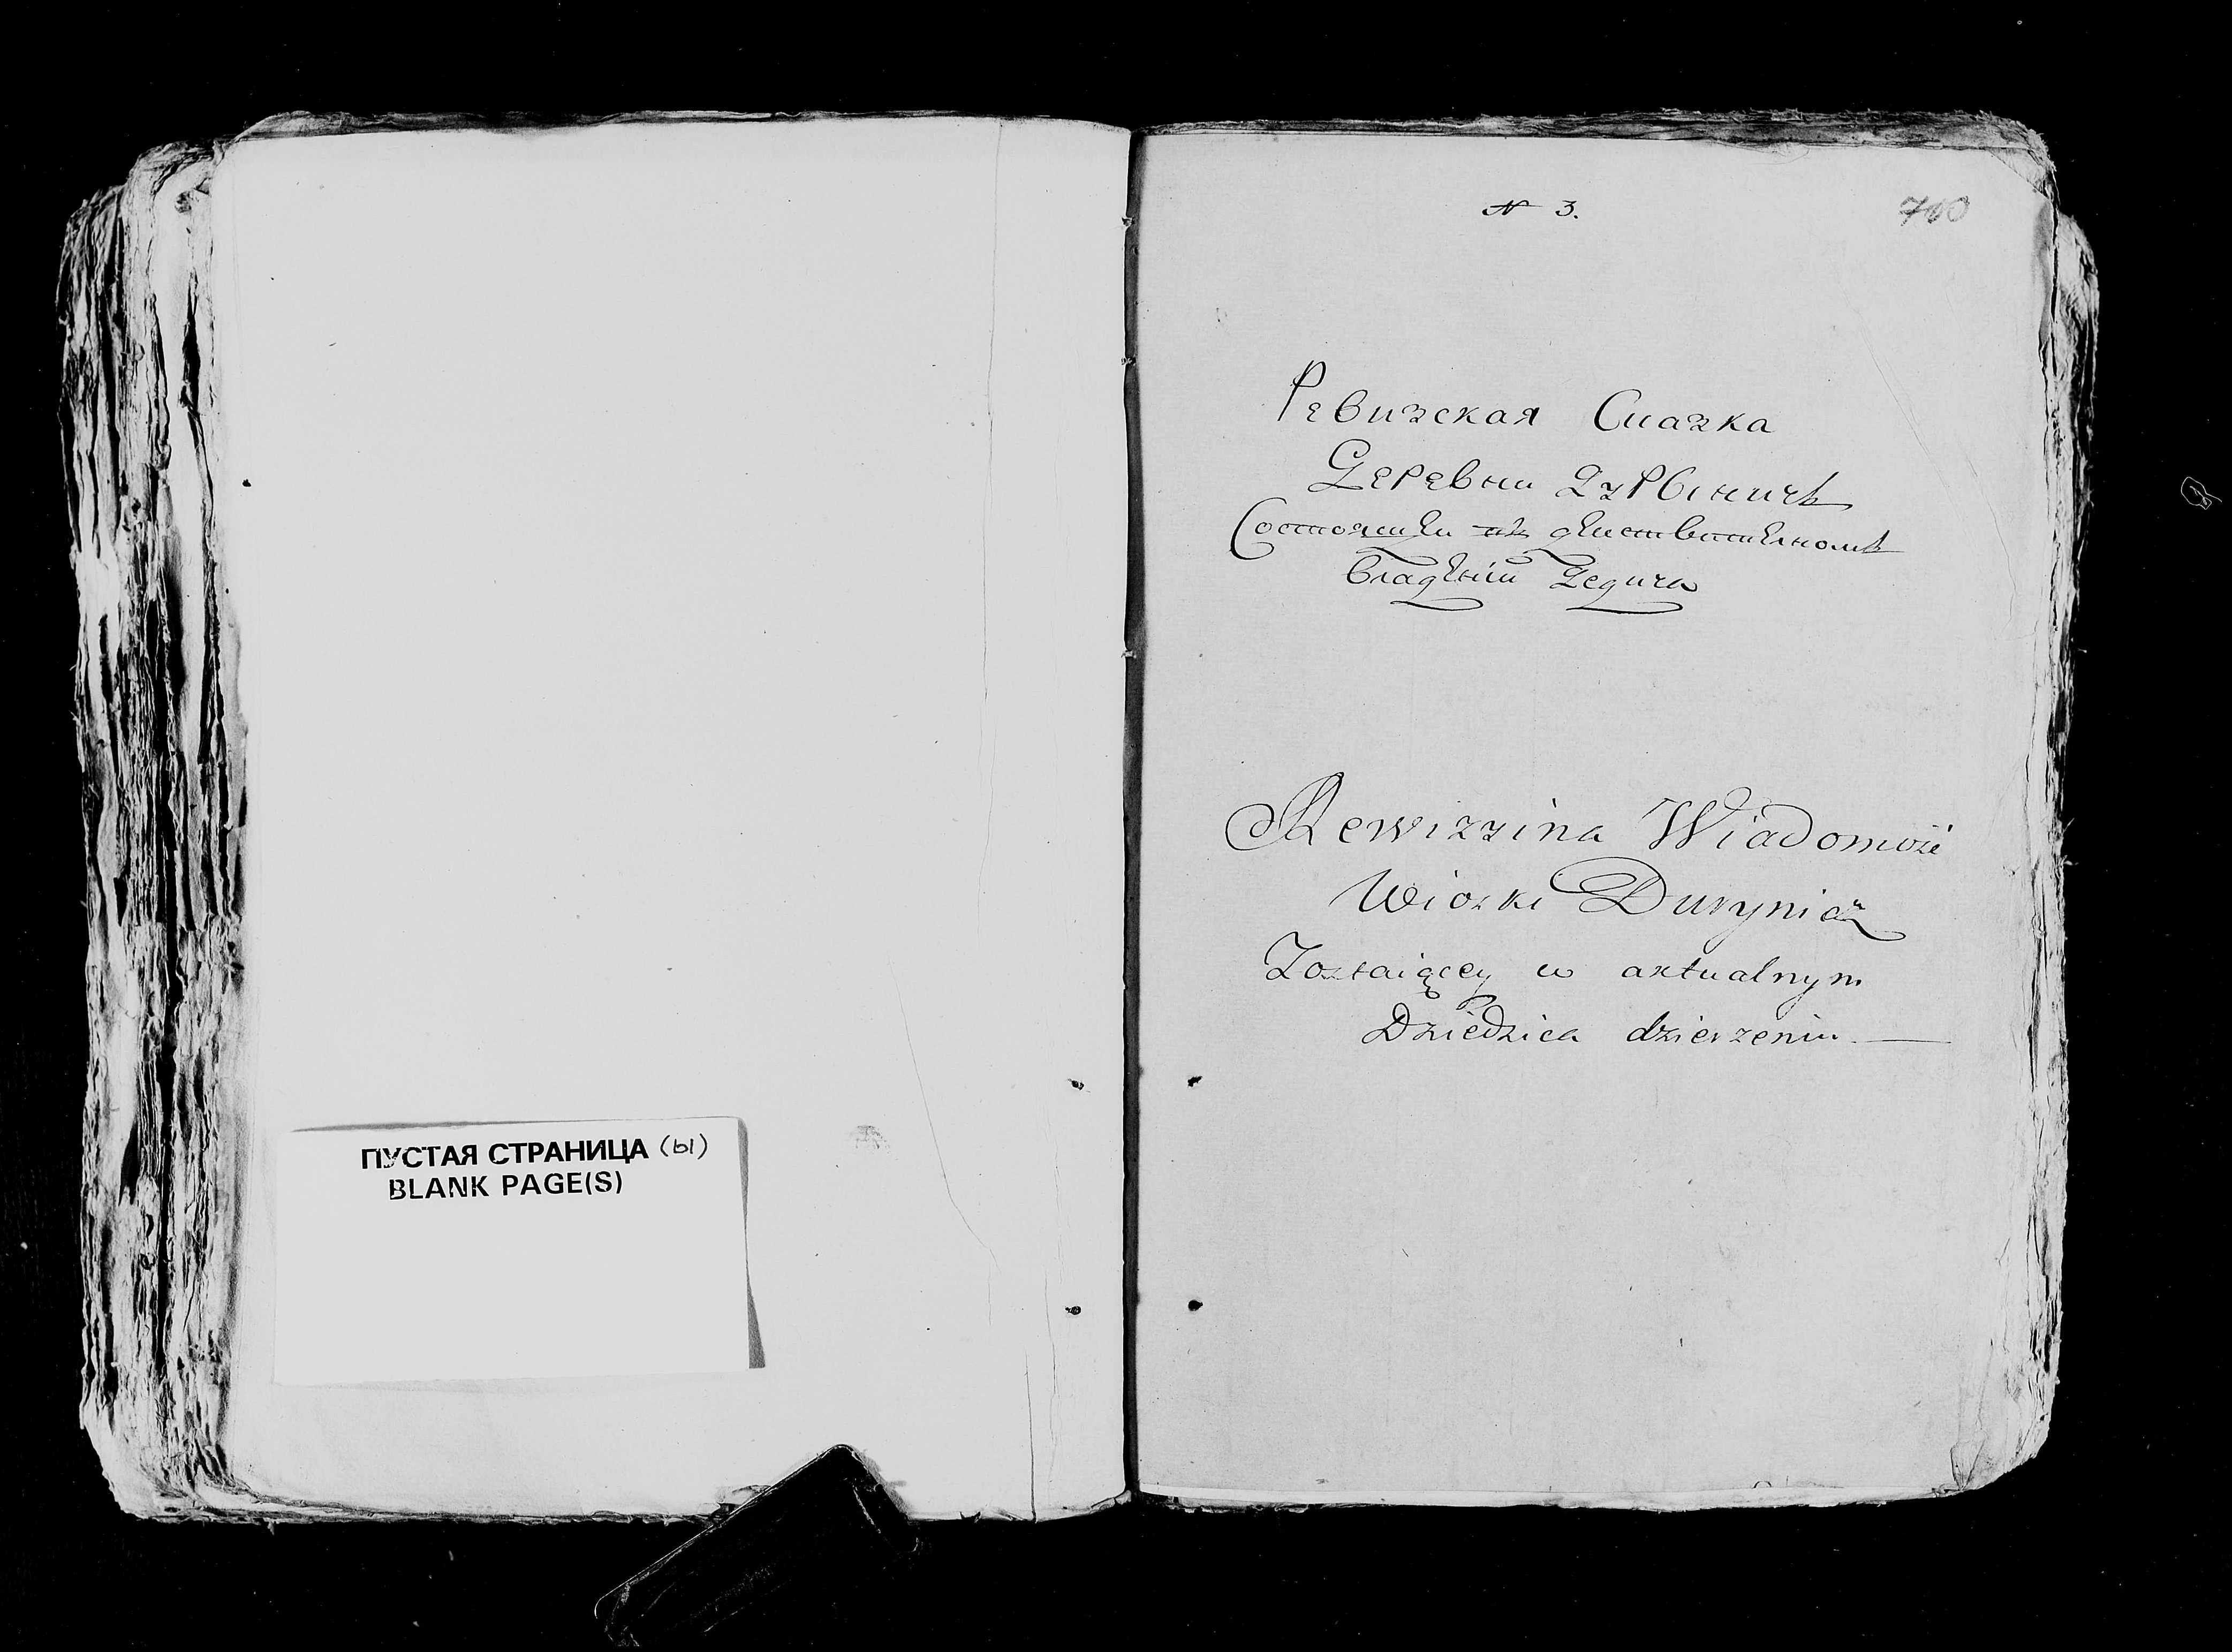 ПУСТАЯ СТРАНИЦА (ы)
BLANK PAGE(S)
N 3.
700
Ревизская Сказка
Деревни Дурыничъ
Состоящей въ действительномъ
владѣнїи Дедича
Rewizzina Wiadomość
Wioski Durynicz
Zostaiącey w aktualnym
Dziedzica dzierzeniu.